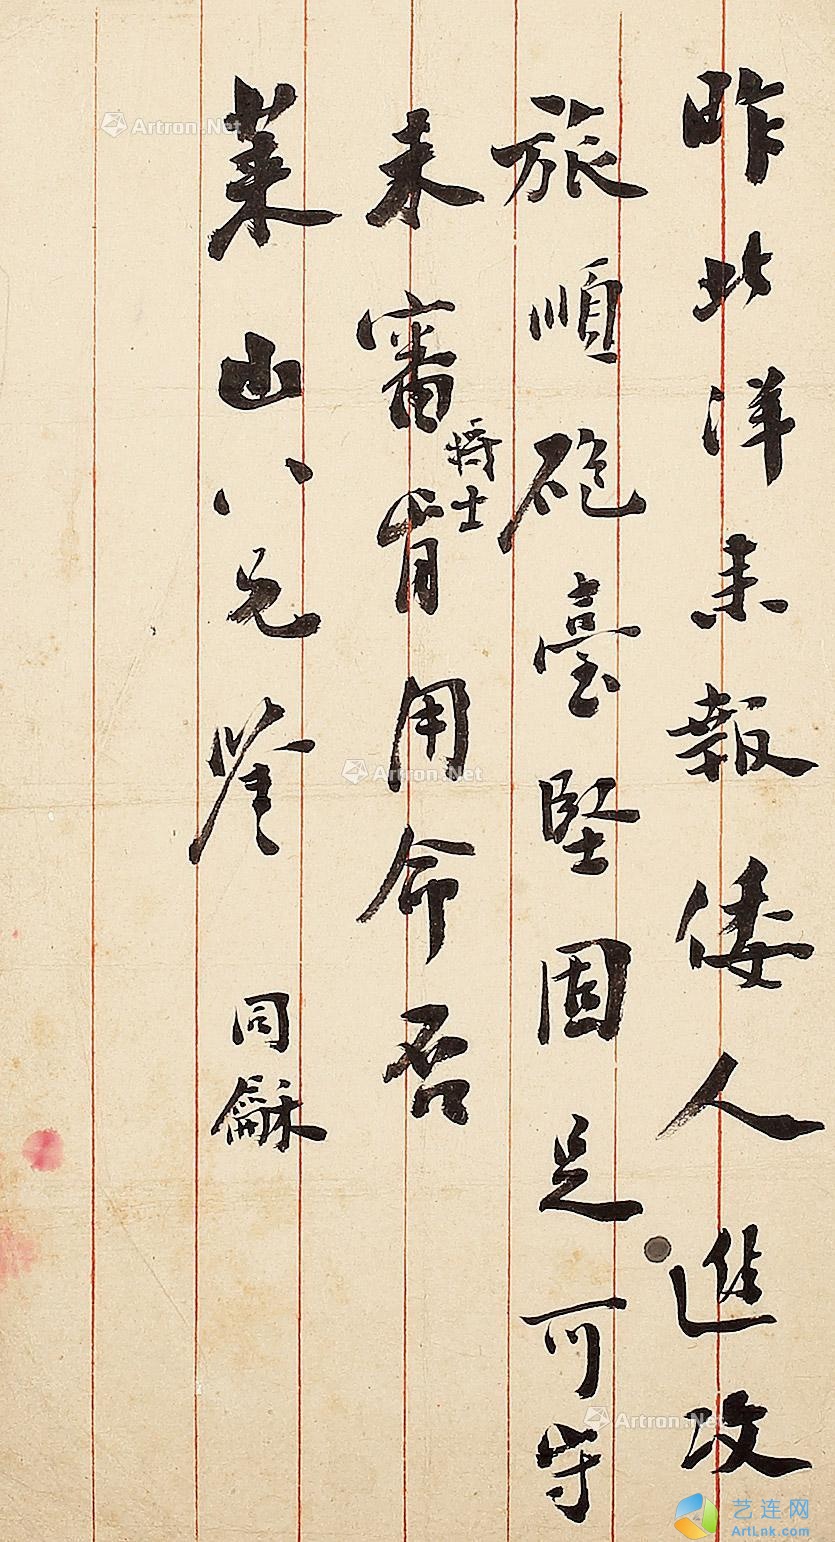 昨北洋来報倭人進攻
旅順砲臺堅固足可守
未審將士肯用命否
萊山八兄鑒 同龢
Artron.Net
Artron.Net
Artron.Net
艺连网
ArtLnk.com